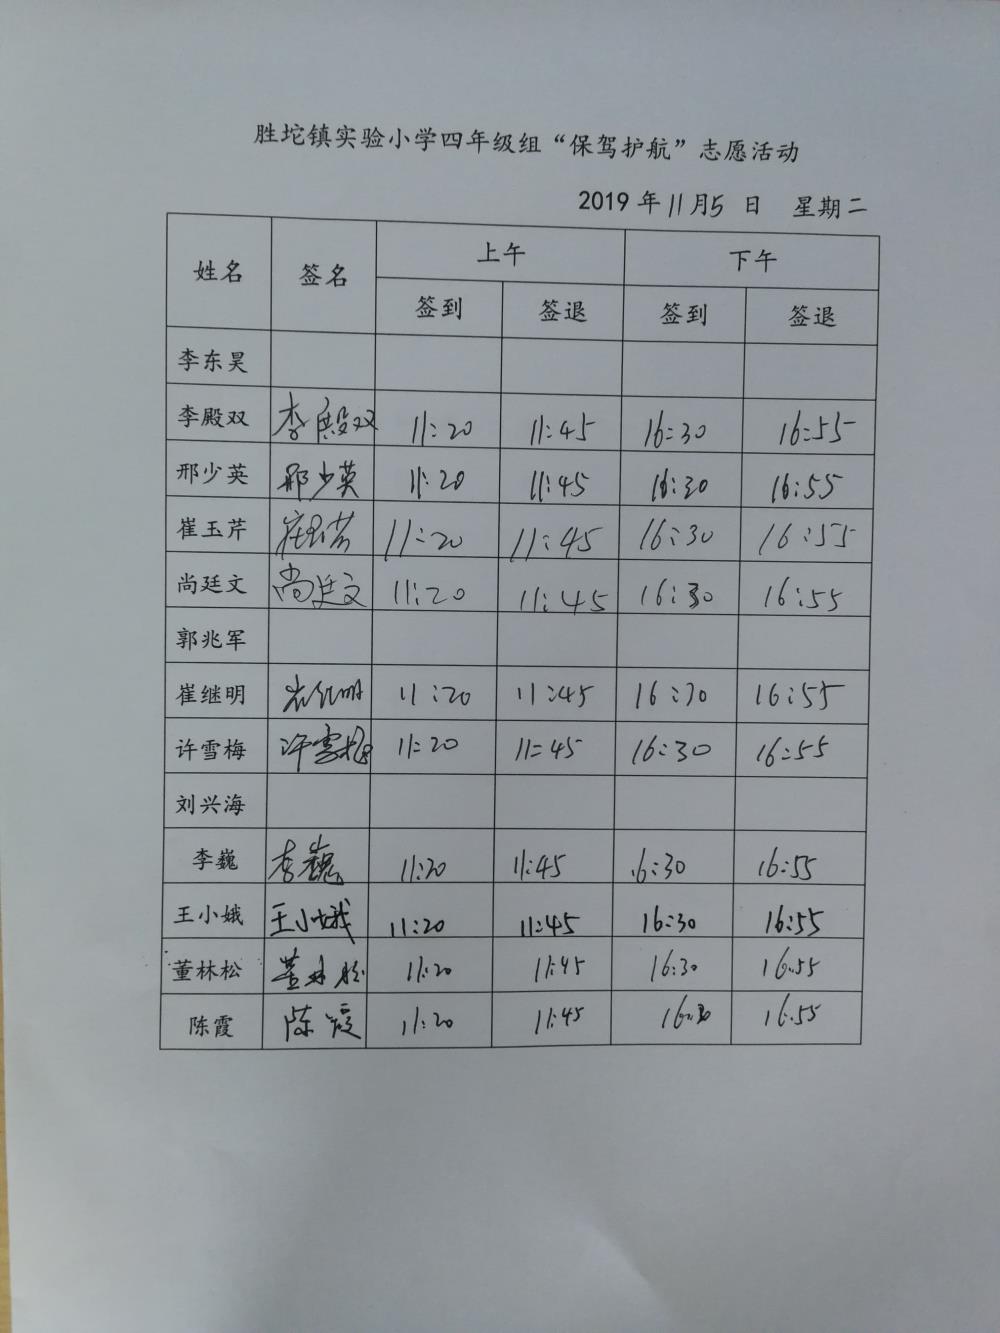 胜坨镇实验小学四年级组“保驾护航”志愿活动
2019 年 11 月 5 日 星期二
姓名 签名 上午 下午
签到 签退 签到 签退
李东昊
李殿双 李殿双 11:20 11:45 16:30 16:55
邢少英 邢少英 11:20 11:45 16:30 16:55
崔玉芹 崔玉芹 11:20 11:45 16:30 16:55
尚廷文 尚廷文 11:20 11:45 16:30 16:55
郭兆军
崔继明 崔继明 11:20 11:45 16:30 16:55
许雪梅 许雪梅 11:20 11:45 16:30 16:55
刘兴海
李巍 李巍 11:20 11:45 16:30 16:55
王小娥 王小娥 11:20 11:45 16:30 16:55
董林松 董林松 11:20 11:45 16:30 16.55
陈霞 陈霞 11:20 11:45 16:30 16.55